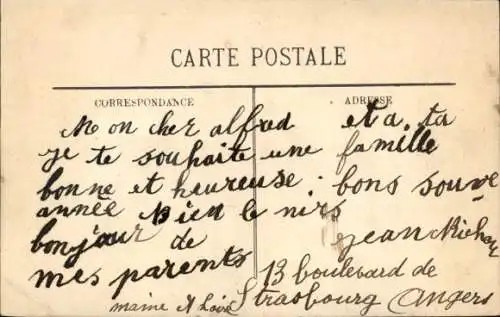 CARTE POSTALE
CORRESPONDANCE
ADRESSE
Mon cher alfred
je te souhaite une
bonne et heureuse
année Bien le
bonjour de
mes parents
et a ta
famille
bons souve
nirs
jean Richar
13 boulevard de
Strasbourg Angers
maine et Loire